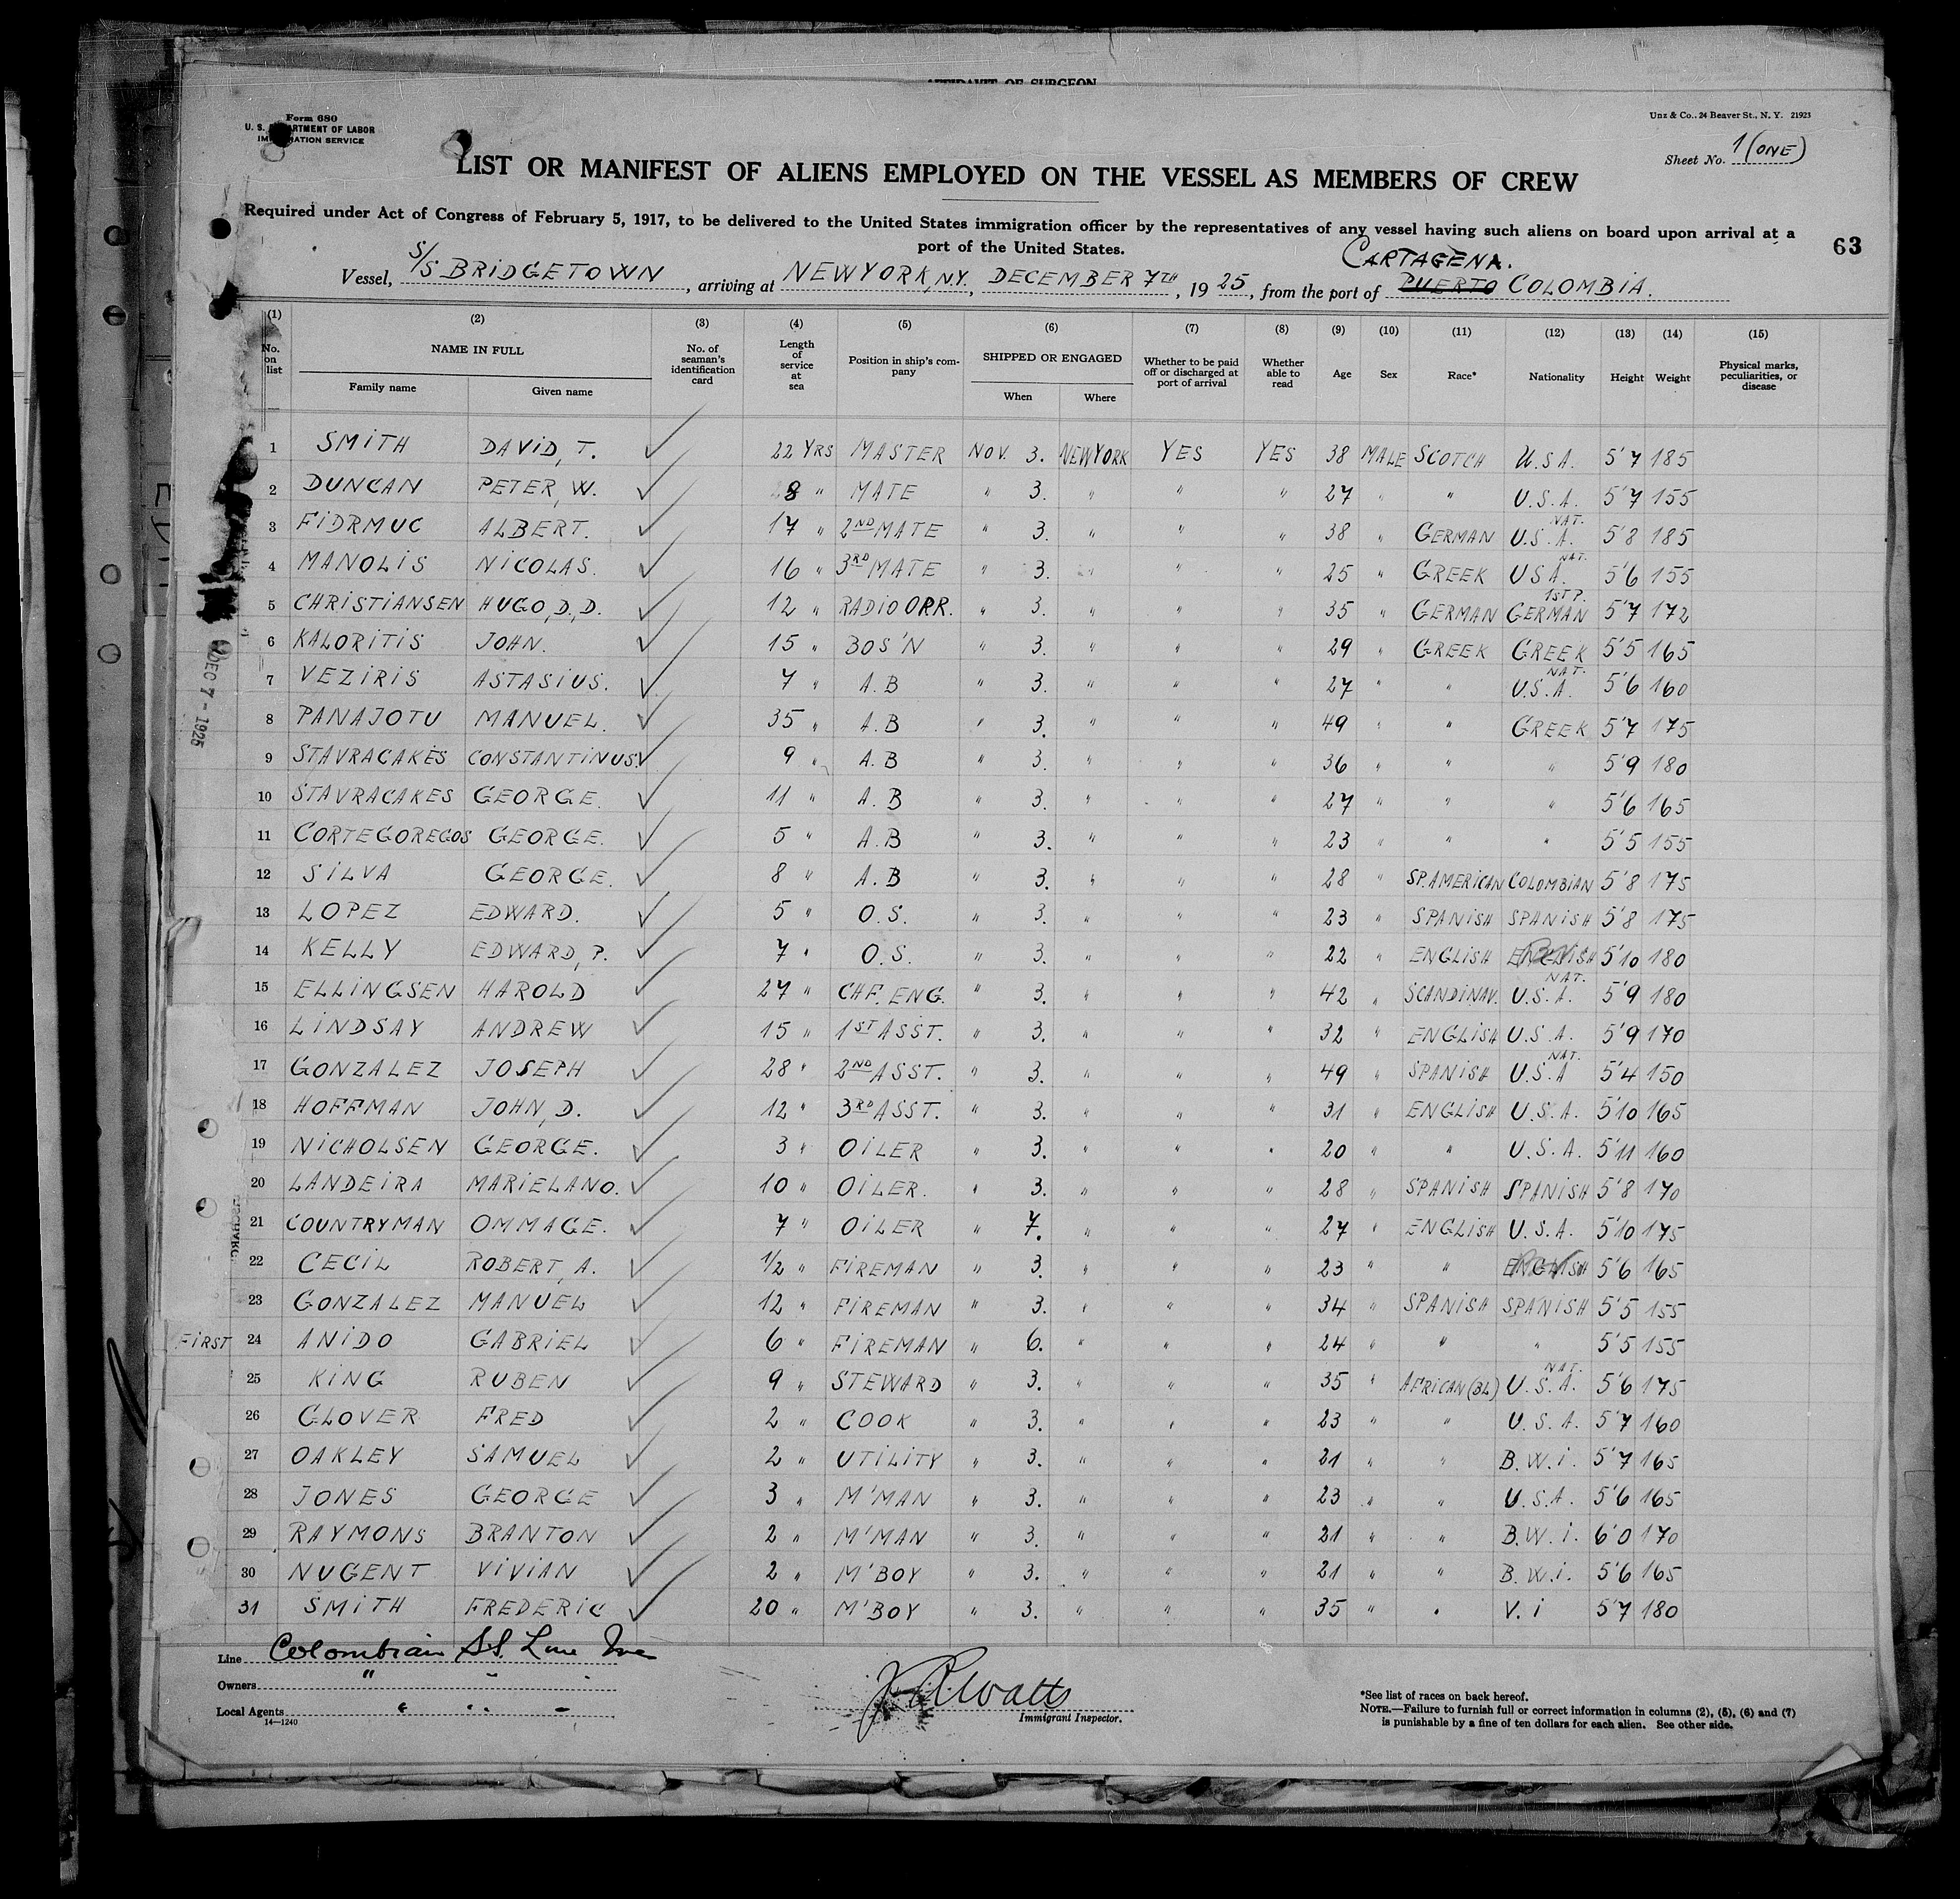 AFFIDAVIT OF SURGEON
Form 680
U. S. DEPARTMENT OF LABOR
IMMIGRATION SERVICE
Unz & Co., 24 Beaver St., N. Y. 21923
Sheet No. 1 (ONE)
LIST OR MANIFEST OF ALIENS EMPLOYED ON THE VESSEL AS MEMBERS OF CREW
Required under Act of Congress of February 5, 1917, to be delivered to the United States immigration officer by the representatives of any vessel having such aliens on board upon arrival at a
port of the United States.
63
CARTAGENA.
Vessel, S/S BRIDGETOWN, arriving at NEW YORK, N.Y., DECEMBER 7TH, 1925, from the port of PUERTO COLOMBIA.
(1) (2) (3) (4) (5) (6) (7) (8) (9) (10) (11) (12) (13) (14) (15)
No. on list NAME IN FULL Family name Given name No. of seaman's identification card Length of service at sea Position in ship's company SHIPPED OR ENGAGED When Where Whether to be paid off or discharged at port of arrival Whether able to read Age Sex Race* Nationality Height Weight Physical marks, peculiarities, or disease
1 SMITH DAVID, T. ✓ 22 YRS MASTER NOV. 3. NEW YORK YES YES 38 MALE SCOTCH U.S.A. 5'7 185
2 DUNCAN PETER, W. ✓ 8 " MATE " 3. " " " 27 " " U.S.A. 5'7 155
3 FIDRMUC ALBERT. ✓ 17 " 2ND MATE " 3. " " " 38 " GERMAN NAT. U.S.A. 5'8 185
4 MANOLIS NICOLAS. ✓ 16 " 3RD MATE " 3. " " " 25 " GREEK NAT. USA. 5'6 155
5 CHRISTIANSEN HUGO, D, D. ✓ 12 " RADIO OPR. " 3. " " " 35 " GERMAN 1ST P. GERMAN 5'7 172
6 KALORITIS JOHN. ✓ 15 " BOS'N " 3. " " " 29 " GREEK GREEK 5'5 165
7 VEZIRIS ASTASIUS. ✓ 7 " A.B " 3. " " " 27 " " NAT. U.S.A. 5'6 160
8 PANAJOTU MANUEL. ✓ 35 " A.B " 3. " " " 49 " " GREEK 5'7 175
9 STAVRACAKES CONSTANTINUS. ✓ 9 " A.B " 3. " " " 36 " " " 5'9 180
10 STAVRACAKES GEORGE. ✓ 11 " A.B " 3. " " " 27 " " " 5'6 165
11 CORTEGOREGOS GEORGE. ✓ 5 " A.B " 3. " " " 23 " " " 5'5 155
12 SILVA GEORGE. ✓ 8 " A.B " 3. " " " 28 " SP. AMERICAN COLOMBIAN 5'8 175
13 LOPEZ EDWARD. ✓ 5 " O.S. " 3. " " " 23 " SPANISH SPANISH 5'8 175
14 KELLY EDWARD, P. ✓ 7 " O.S. " 3. " " " 22 " ENGLISH ENGLISH 5'10 180
15 ELLINGSEN HAROLD ✓ 27 " CHF. ENG. " 3. " " " 42 " SCANDINAV. NAT. U.S.A. 5'9 180
16 LINDSAY ANDREW ✓ 15 " 1ST ASST. " 3. " " " 32 " ENGLISH U.S.A. 5'9 170
17 GONZALEZ JOSEPH ✓ 28 " 2ND ASST. " 3. " " " 49 " SPANISH NAT. U.S.A 5'4 150
18 HOFFMAN JOHN, D. ✓ 12 " 3RD ASST. " 3. " " " 31 " ENGLISH U.S.A. 5'10 165
19 NICHOLSEN GEORGE. ✓ 3 " OILER " 3. " " " 20 " " U.S.A. 5'11 160
20 LANDEIRA MARIELANO. ✓ 10 " OILER. " 3. " " " 28 " SPANISH SPANISH 5'8 170
21 COUNTRYMAN OMMAGE. ✓ 7 " OILER " 7. " " " 27 " ENGLISH U.S.A. 5'10 175
22 CECIL ROBERT, A. ✓ 1/2 " FIREMAN " 3. " " " 23 " " ENGLISH 5'6 165
23 GONZALEZ MANUEL ✓ 12 " FIREMAN " 3. " " " 34 " SPANISH SPANISH 5'5 155
FIRST 24 ANIDO GABRIEL ✓ 6 " FIREMAN " 6. " " " 24 " " " 5'5 155
25 KING RUBEN ✓ 9 " STEWARD " 3. " " " 35 " AFRICAN (BL) NAT. U.S.A. 5'6 175
26 GLOVER FRED ✓ 2 " COOK " 3. " " " 23 " " U.S.A. 5'7 160
27 OAKLEY SAMUEL ✓ 2 " UTILITY " 3. " " " 21 " " B.W.I. 5'7 165
28 JONES GEORGE ✓ 3 " M'MAN " 3. " " " 23 " " U.S.A. 5'6 165
29 RAYMONS BRANTON ✓ 2 " M'MAN " 3. " " " 21 " " B.W.I. 6'0 170
30 NUGENT VIVIAN ✓ 2 " M'BOY " 3. " " " 21 " " B.W.I. 5'6 165
31 SMITH FREDERIC ✓ 20 " M'BOY " 3. " " " 35 " " V.I 5'7 180
DEC 7 - 1925
Line Colombian S.S. Line Inc
Owners " " "
Local Agents " " "
14—1240
Watts
Immigrant Inspector.
*See list of races on back hereof.
NOTE.—Failure to furnish full or correct information in columns (2), (5), (6) and (7)
is punishable by a fine of ten dollars for each alien. See other side.